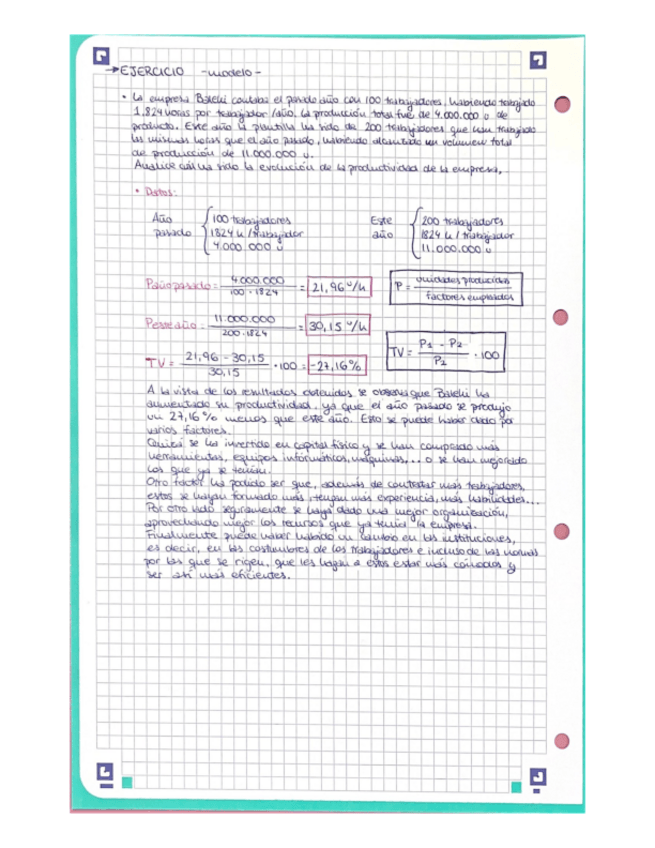 → EJERCICIO - modelo -
• La empresa Batchi contaba el pasado año con 100 trabajadores, habiendo trabajado
1.824 horas por trabajador/año. La producción total fue de 4.000.000 u de
producto. Este año la plantilla ha sido de 200 trabajadores que han trabajado
las mismas horas que el año pasado, habiendo alcanzado un volumen total
de producción de 11.000.000 u.
Analice cuál ha sido la evolución de la productividad de la empresa.
• Datos:
Año pasado { 100 trabajadores
1824 h / trabajador
4.000.000 u
Este año { 200 trabajadores
1824 h / trabajador
11.000.000 u
P año pasado = 4.000.000 / 100 · 1824 = 21,96 u/h
P = unidades producidas / factores empleados
P este año = 11.000.000 / 200 · 1824 = 30,15 u/h
TV = P1 - P2 / P2 · 100
TV = 21,96 - 30,15 / 30,15 · 100 = -27,16%
A la vista de los resultados obtenidos se observa que Batchi ha
aumentado su productividad, ya que el año pasado se produjo
un 27,16% menos que este año. Esto se puede haber dado por
varios factores.
Quizá se ha invertido en capital físico y se han comprado más
herramientas, equipos informáticos, máquinas,... o se han mejorado
los que ya se tenían.
Otro factor ha podido ser que, además de contratar más trabajadores,
estos se hayan formado más, tengan más experiencia, más habilidades...
Por otro lado seguramente se haya dado una mejor organización,
aprovechando mejor los recursos que ya tenía la empresa.
Finalmente puede haber habido un cambio en las instituciones,
es decir, en las costumbres de los trabajadores e incluso de las normas
por las que se rigen, que les hagan a estos estar más cómodos y
ser así más eficientes.